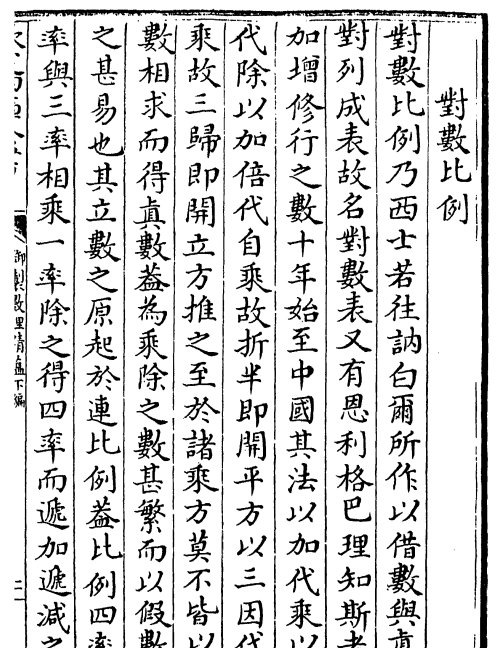 對數比例
對數比例乃西士若往訥白爾所作以借數與真
對列成表故名對數表又有恩利格巴理知斯者
加增修行之數十年始至中國其法以加代乘以
代除以加倍代自乘故折半即開平方以三因代
乘故三歸即開立方推之至於諸乘方莫不皆以
數相求而得眞數葢為乘除之數甚繁而以假數
之甚易也其立數之原起於連比例葢比例四率
率與三率相乘一率除之得四率而遞加遞減之
御製數理精蘊下編
二